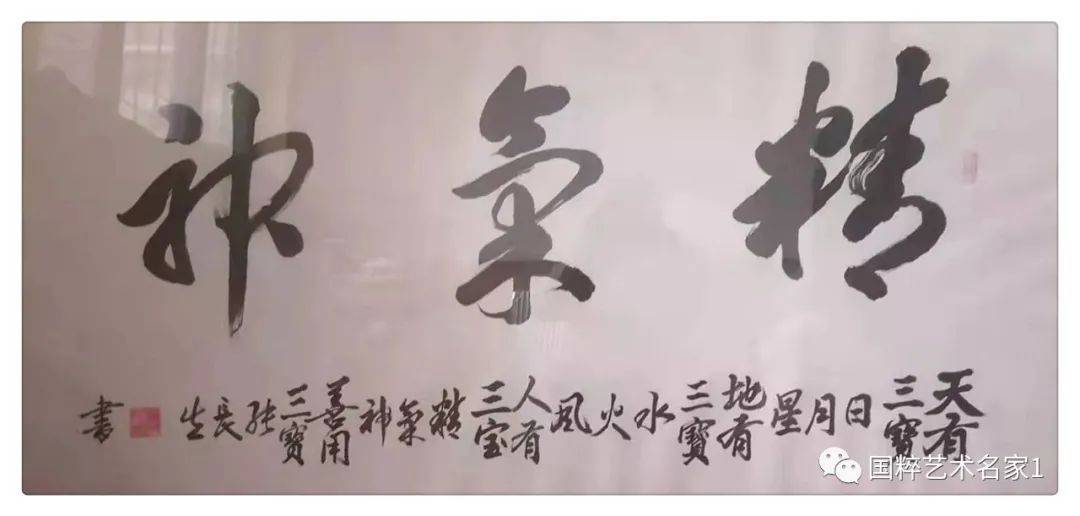 精氣神
天有三寶日月星地有三寶水火風人有三宝精氣神善用三寶能長生
書
国粹艺术名家1